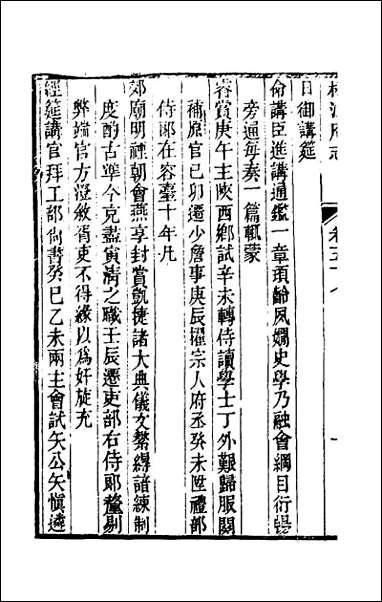 杭州府志 卷五十八
日御講筵
命講臣進講通鑑一章頊齡夙嫺史學乃融會綱目衍暢
旁通每奏一篇輒蒙
睿賞庚午主陝西鄉試辛未轉侍讀學士丁外艱歸服闋
補原官己卯遷少詹事庚辰擢宗人府丞癸未陞禮部
侍郎在容臺十年凡
郊廟明禋朝會燕享封賞凱捷諸大典儀文繁縟諳練制
度酌古準今克盡寅清之職壬辰遷吏部右侍郎釐剔
弊端官方澄敘胥吏不得緣以為奸旋充
經筵講官拜工部尚書癸巳乙未兩主會試矢公矢愼遴